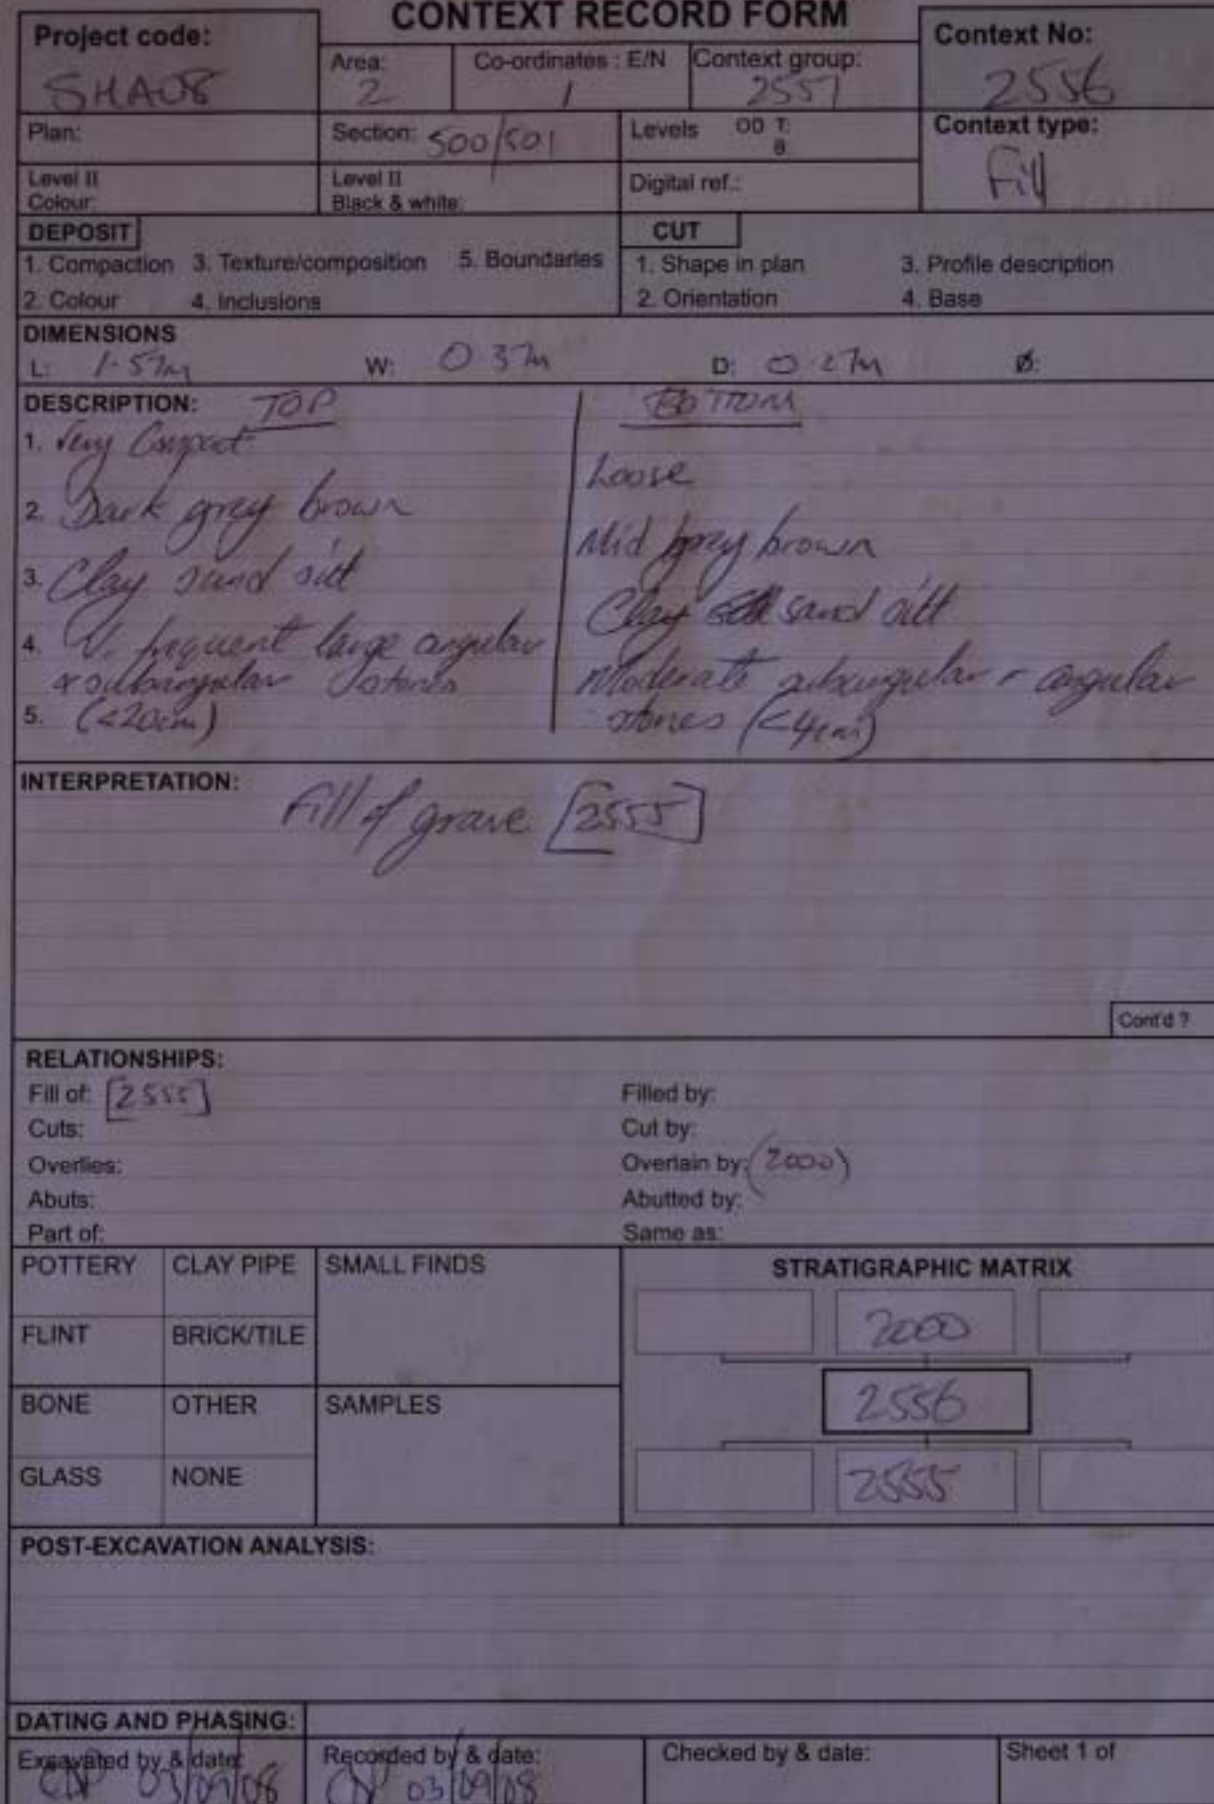 CONTEXT RECORD FORM
Project code:
SHA08
Area:
2
Co-ordinates : E/N
/
Context group:
2557
Context No:
2556
Plan:
Section: 500/501
Levels OD T:
B:
Context type:
Fill
Level II
Colour:
Level II
Black & white:
Digital ref.:
DEPOSIT
1. Compaction 3. Texture/composition 5. Boundaries
2. Colour 4. Inclusions
CUT
1. Shape in plan 3. Profile description
2. Orientation 4. Base
DIMENSIONS
L: 1.57m W: 0.37m D: 0.27m Ø:
DESCRIPTION: TOP
1. Very Compact
2. Dark grey brown
3. Clay sand silt
4. V. frequent large angular
+ subangular stones
5. (<20cm)
BOTTOM
Loose
Mid grey brown
Clay sand silt
Moderate subangular + angular
stones (<4cm)
INTERPRETATION:
Fill of grave [2555]
Cont'd ?
RELATIONSHIPS:
Fill of: [2555] Filled by:
Cuts: Cut by:
Overlies: Overlain by: (2000)
Abuts: Abutted by:
Part of: Same as:
POTTERY CLAY PIPE SMALL FINDS
FLINT BRICK/TILE
BONE OTHER SAMPLES
GLASS NONE
STRATIGRAPHIC MATRIX
2000
2556
2555
POST-EXCAVATION ANALYSIS:
DATING AND PHASING:
Excavated by & date:
03/09/08
Recorded by & date:
03/09/08
Checked by & date:
Sheet 1 of